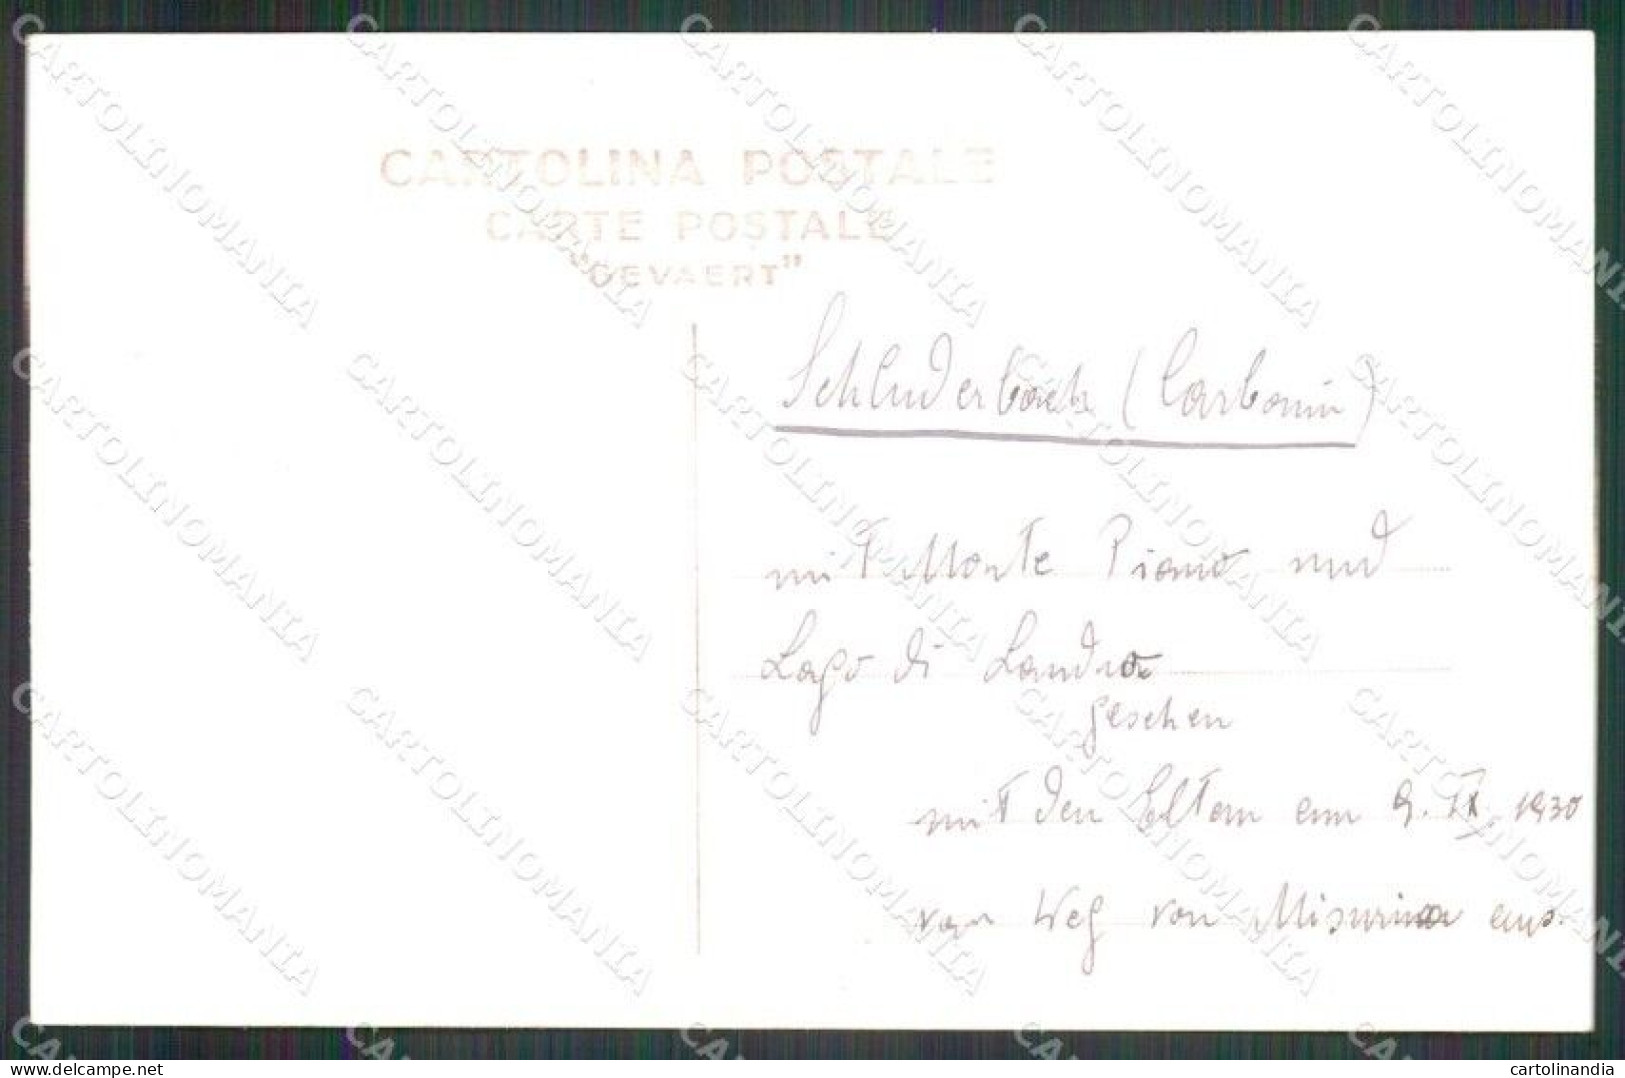 CARTOLINA POSTALE
CARTE POSTALE
"GEVAERT"
Schluderbach (Carbonin)
mit Monte Piano und
Lago di Landro
gesehen
mit den Eltern am 9. IX. 1930
vom Weg von Misurina aus.
www.delcampe.net
cartolinandia